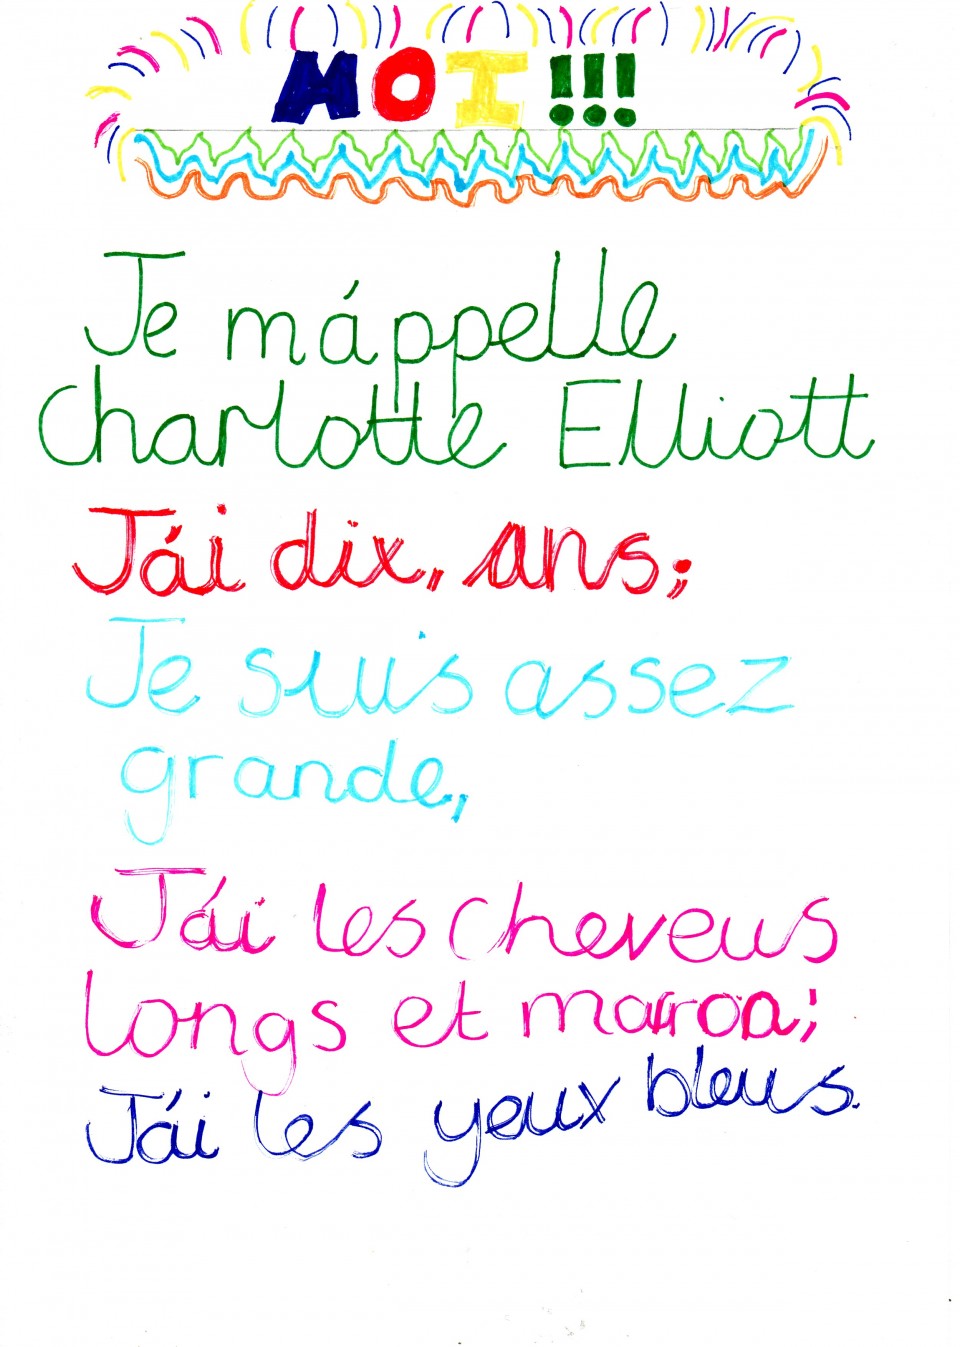 MOI!!!
Je m'áppelle
Charlotte Elliott
Jái dix, ans;
Je suis assez
grande,
Jái les cheveus
longs et marron;
Jái les yeux bleus.